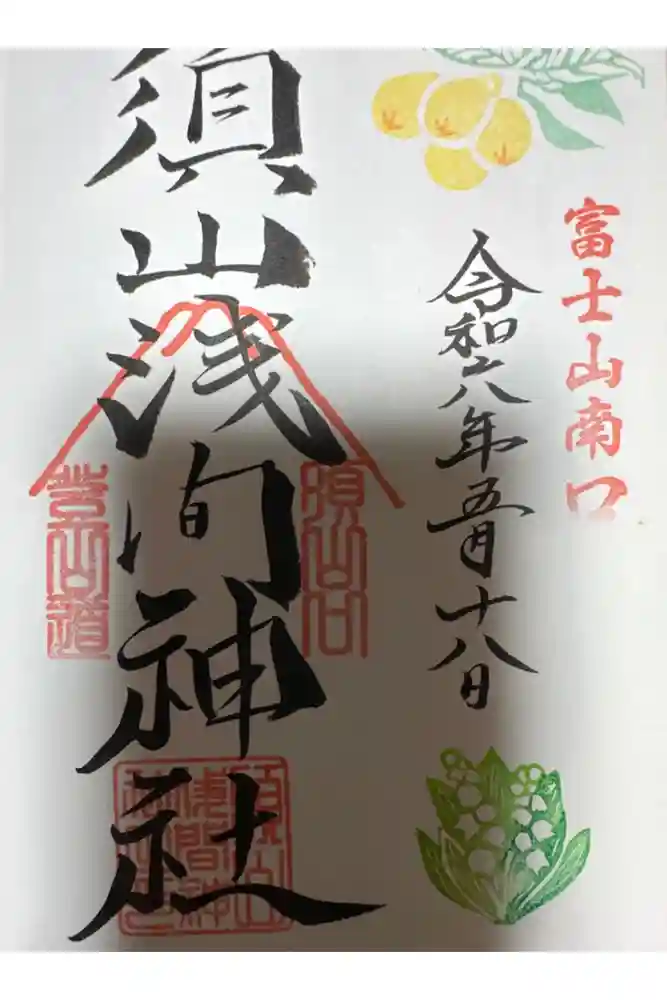 富士山南口
令和六年五月十八日
須山浅间神社
須山口
登山道